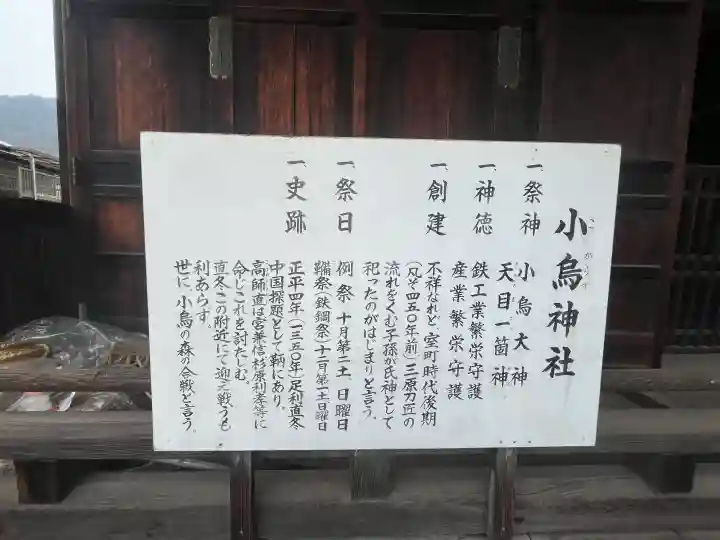 小烏神社
こがらす
一、祭神 小烏大神
天目一箇神
一、神徳 鉄工業繁栄守護
産業繁栄守護
一、創建 不祥なれど、室町時代後期
(凡そ四五〇年前)三原刀匠の
流れをくむ子孫が氏神として
祀ったのがはじまりと言う。
一、祭日 例祭 十月第二土、日曜日
鞴祭(鉄鋼祭)十二月第一土日曜日
一、史跡 正平四年(一三五〇年)足利直冬
中国探題として鞆にあり。
高師直は宮兼信杉原利孝等に
命じこれを討たしむ。
直冬この附近にて迎え戦うも
利あらず。
世に、小烏の森の合戦と言う。